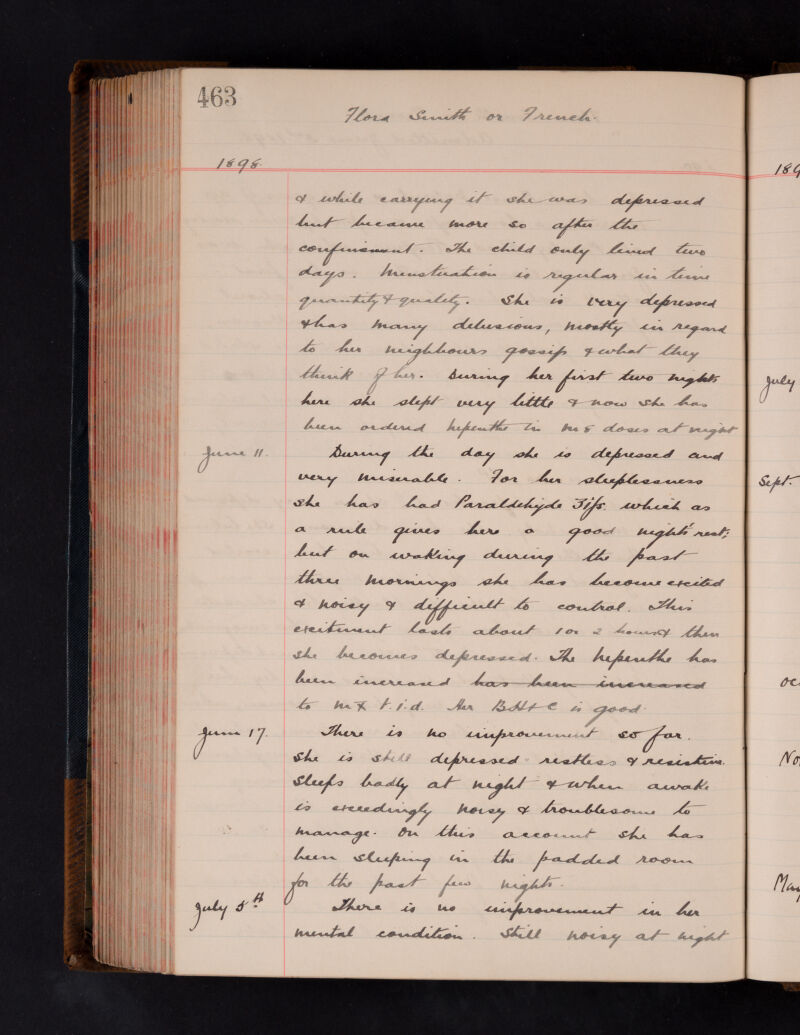 463
Flora Smith or French.
1898.
& while carrying it she was depressed
but became more so after the
confinement. The child only lived two
days. Menstruation is regular in time
quantity & quality. She is very depressed
& has many delusions, mostly in regard
to her neighbours gossip & what they
think of her. During her first two nights
here she slept very little & now she has
been ordered hepenthe in doses at night
June 11. During the day she is depressed and
very miserable. For her sleeplessness
she has had Paraldehyde ʒifs. which as
a rule gives here a good night's rest;
but on waking during the past
three mornings she has become excited
& noisy & difficult to control. This
excitement lasts about 1 or 2 hours & then
she becomes depressed. The hepenthe has
been increased has been increased
to mx t.i.d. Her B.H & C is good.
June 17. There is no improvement so far.
She is still depressed restless & resistive.
Sleeps badly at night & when awake
is exceedingly noisy & troublesome to
manage. On this account she has
been sleeping in the padded room
for the past few nights.
July 5th There is no improvement in her
mental condition. Still noisy at night
189
July
Sept.
Oc
No
May